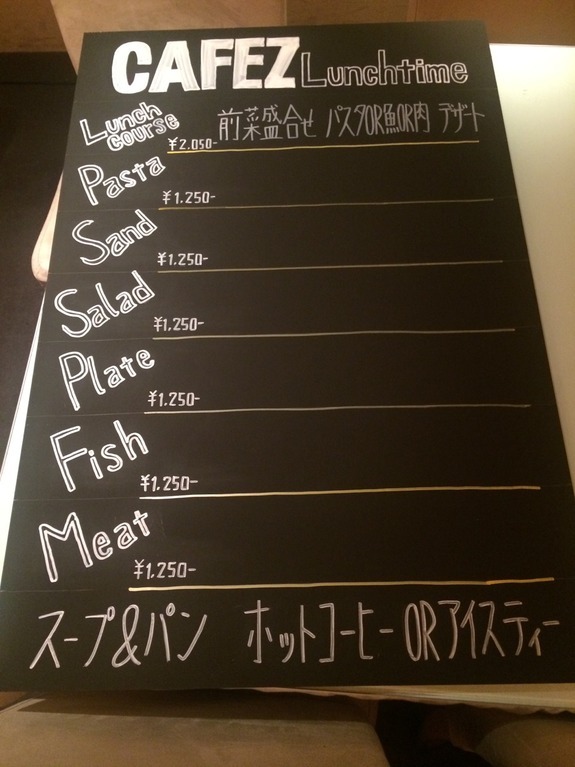 CAFEZ Lunchtime
Lunch course ¥2.050- 前菜盛合せ パスタOR魚OR肉 デザート
Pasta ¥1.250-
Sand ¥1.250-
Salad ¥1,250-
Plate ¥1.250-
Fish ¥1.250-
Meat ¥1.250-
スープ&パン ホットコーヒーORアイスティー